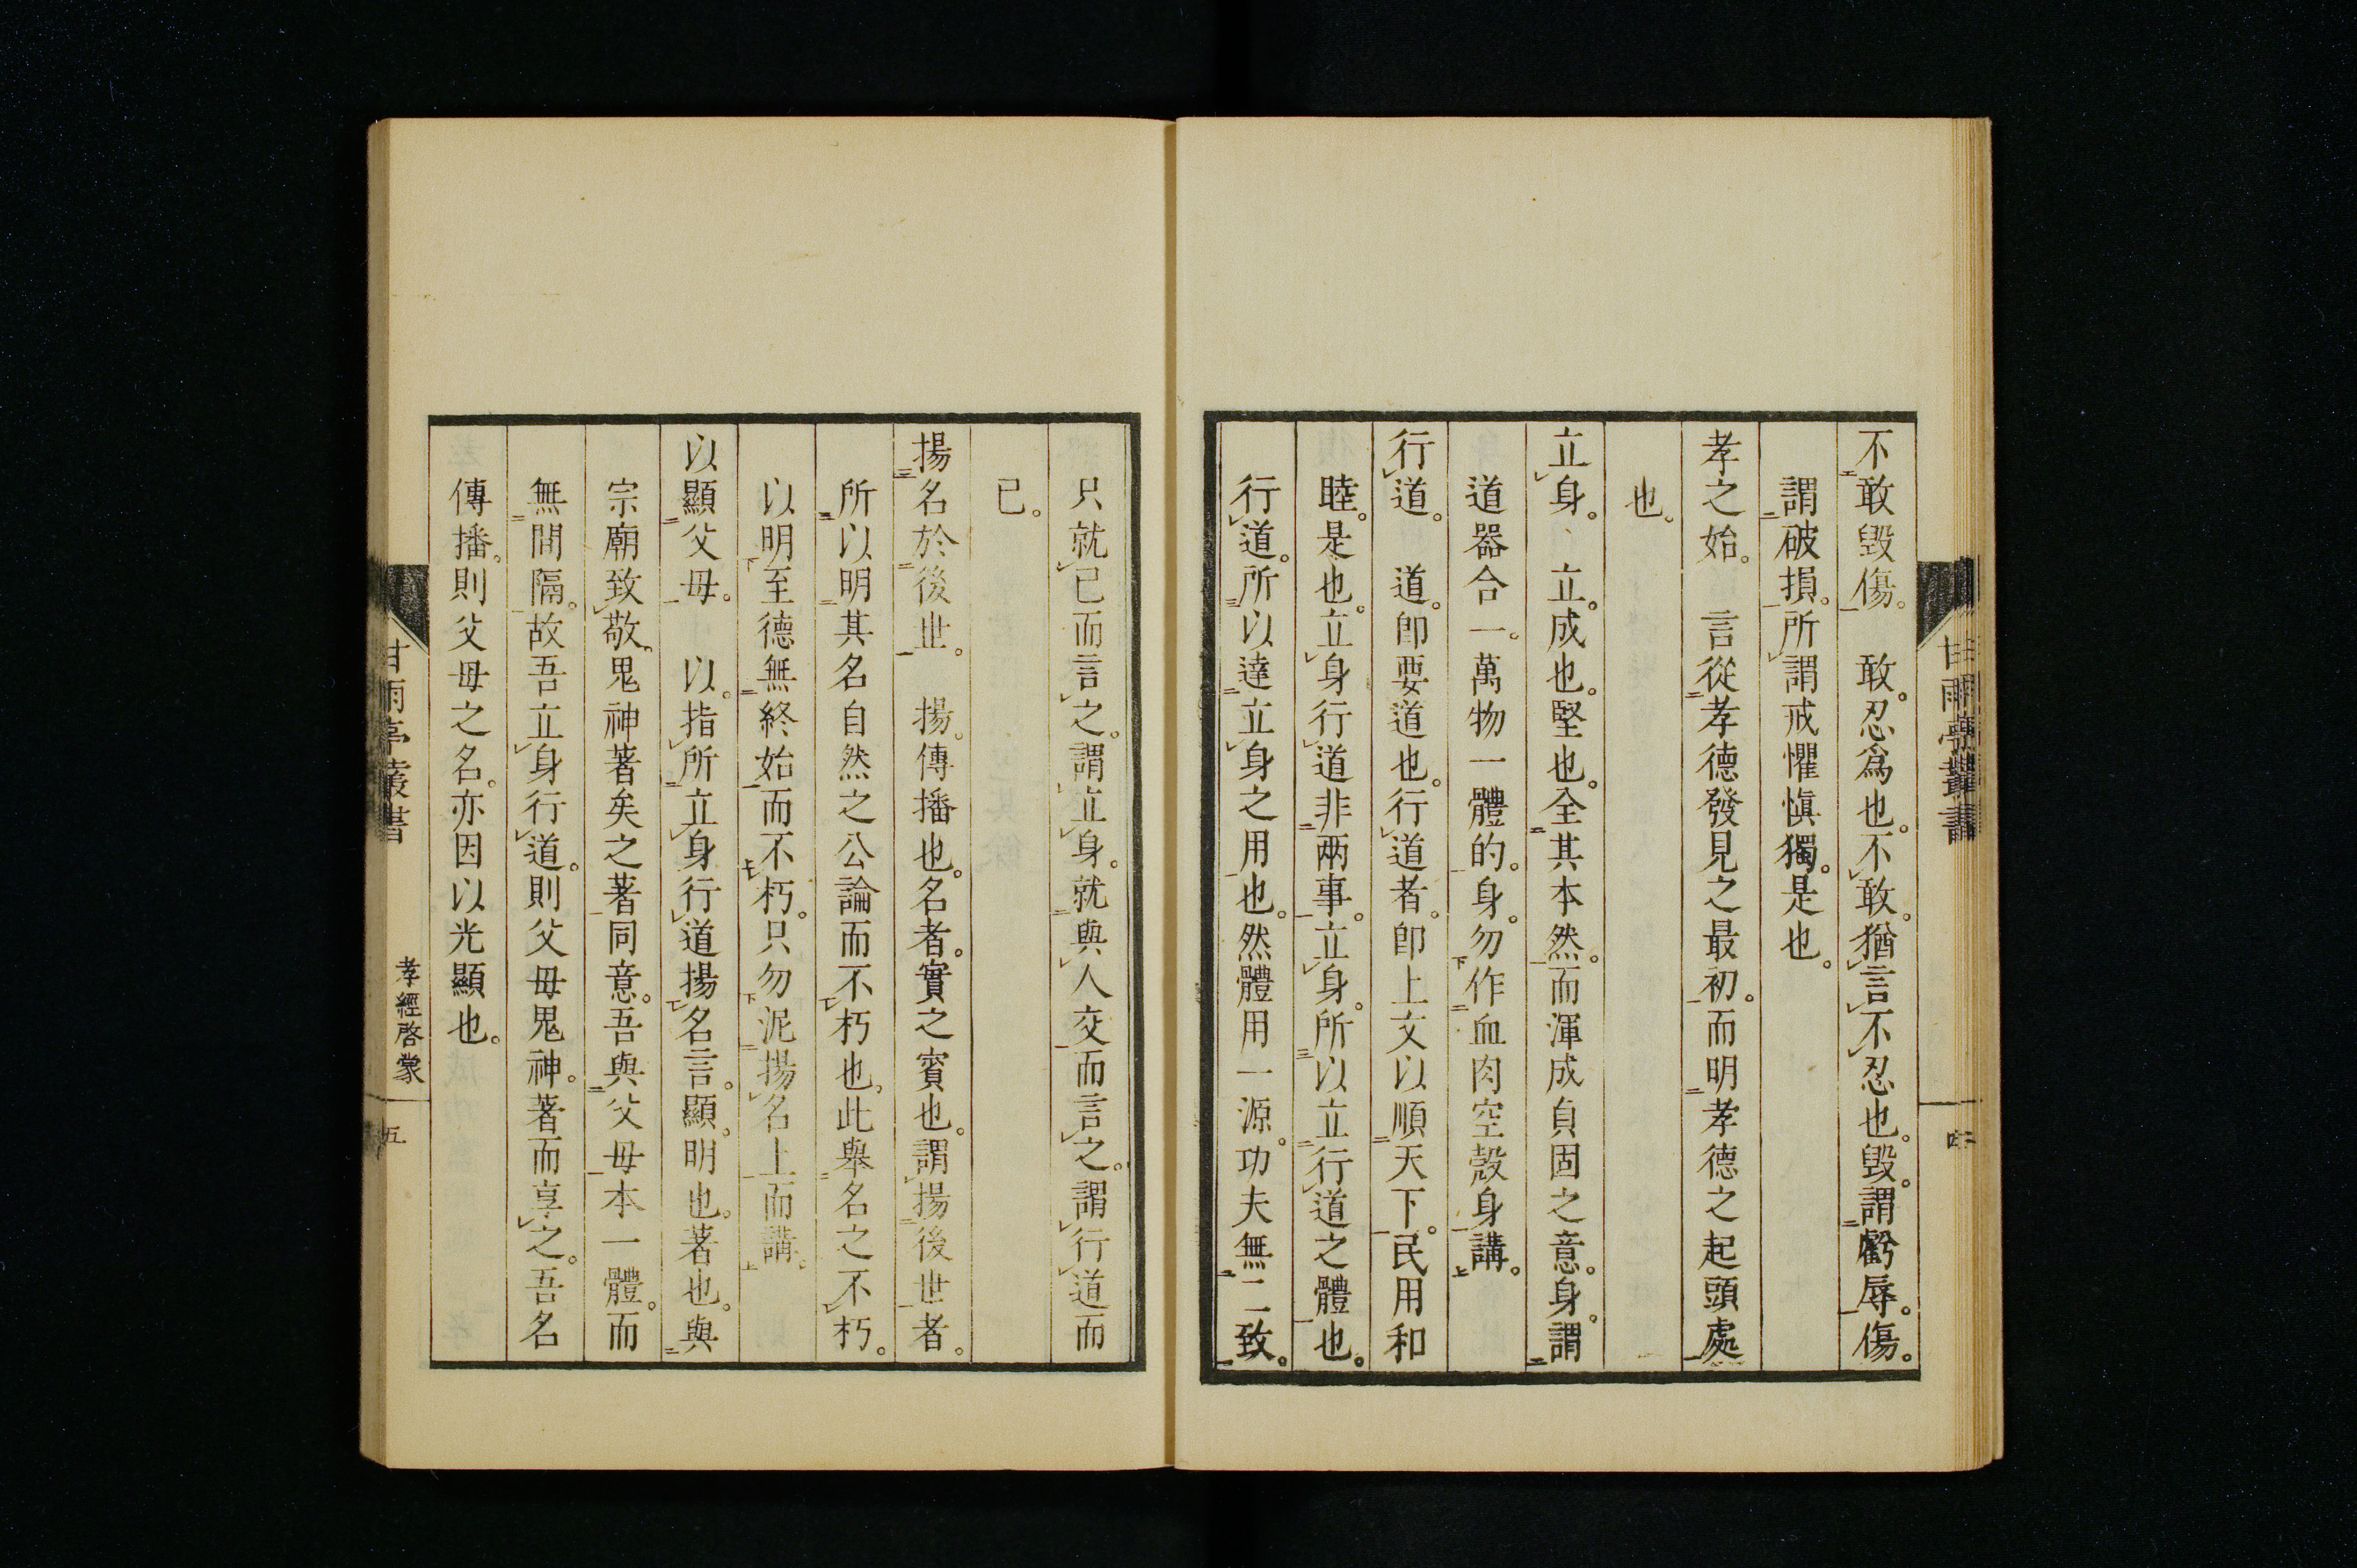 不敢毀傷。 敢。忍爲也。不敢。猶言不忍也。毀。謂虧辱。傷。
謂破損。所謂戒懼愼獨。是也。
孝之始。 言從孝德發見之最初。而明孝德之起頭處
也。
立身。 立。成也。堅也。全其本然。而渾成貞固之意。身。謂
道器合一。萬物一體的。身。勿作血肉空殼身講。
行道。 道。卽要道也。行道者。卽上文以順天下。民用和
睦。是也。立身行道非兩事。立身。所以立行道之體也。
行道。所以達立身之用也。然體用一源。功夫無二致。
甘雨亭叢書
只就己而言之。謂立身。就與人交而言之。謂行道而
已。
揚名於後世。 揚。傳播也。名者。實之賓也。謂揚後世者。
所以明其名自然之公論而不朽也。此擧名之不朽。
以明至德無終始而不朽。只勿泥揚名上而講。
以顯父母。 以。指所立身行道揚名言。顯。明也。著也。與
宗廟致敬。鬼神著矣之著同意。吾與父母本一體。而
無間隔。故吾立身行道。則父母鬼神。著而享之。吾名
傳播。則父母之名。亦因以光顯也。
甘雨亭叢書
孝經啓蒙
五